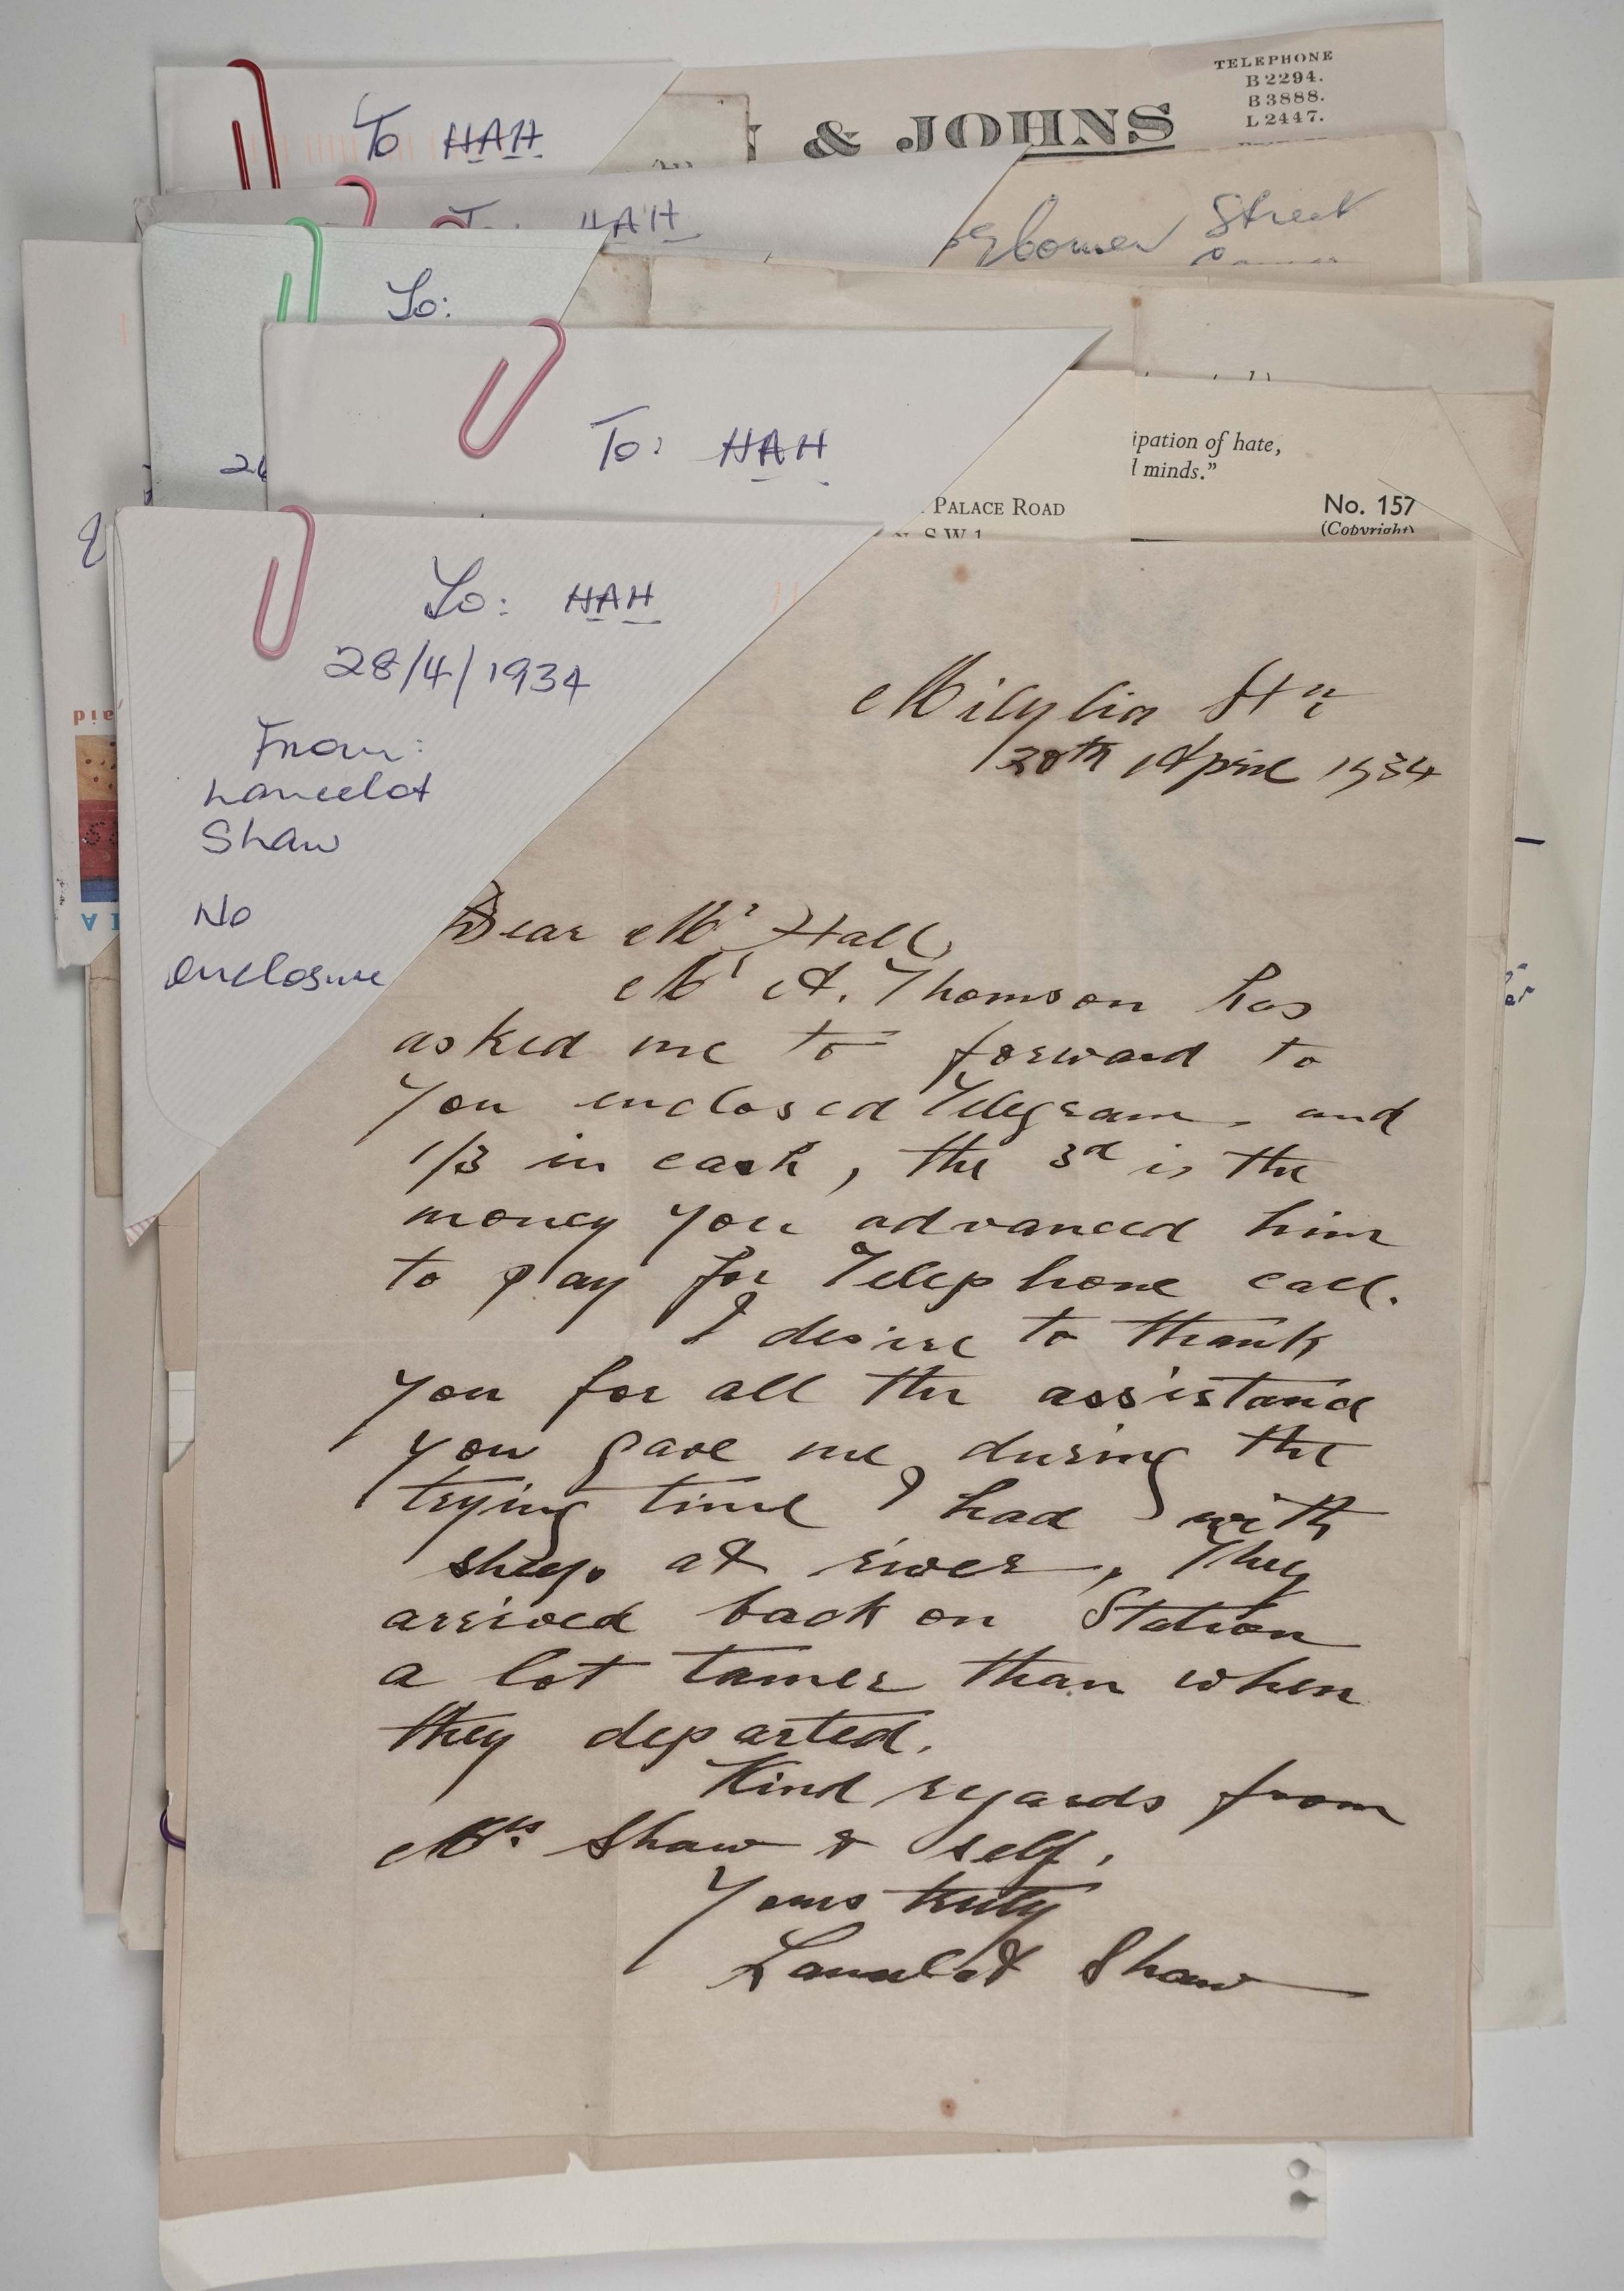 To HAH
& JOHNS
TELEPHONE
B 2294.
B 3888.
L 2447.
To: HAH
Street
To:
To: HAH
ipation of hate,
l minds."
PALACE ROAD
S W 1
No. 157
(Copyright)
To: HAH
28/4/1934
From:
Lancelot
Shaw
No
enclosure
Milylia Stn
28th April 1934
Dear Mr Hall,
Mr A. Thomson has
asked me to forward to
you enclosed Telegram, and
1/3 in cash, the 3d is the
money you advanced him
to pay for Telephone call.
I desire to thank
you for all the assistance
you gave me, during the
trying time I had with
sheep at river, They
arrived back on Station
a lot tamer than when
they departed.
Kind regards from
Mrs. Shaw & self.
Yours truly
Lancelot Shaw